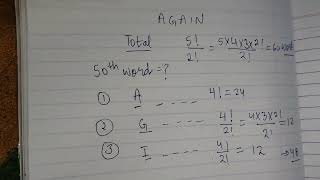 AGAIN
Total 5!/2! = 5×4×3×2!/2! = 60 words
50th word = ?
① A _ _ _ _ 4! = 24
② G _ _ _ _ 4!/2! = 4×3×2!/2! = 12
③ I _ _ _ _ 4!/2! = 12 → 48